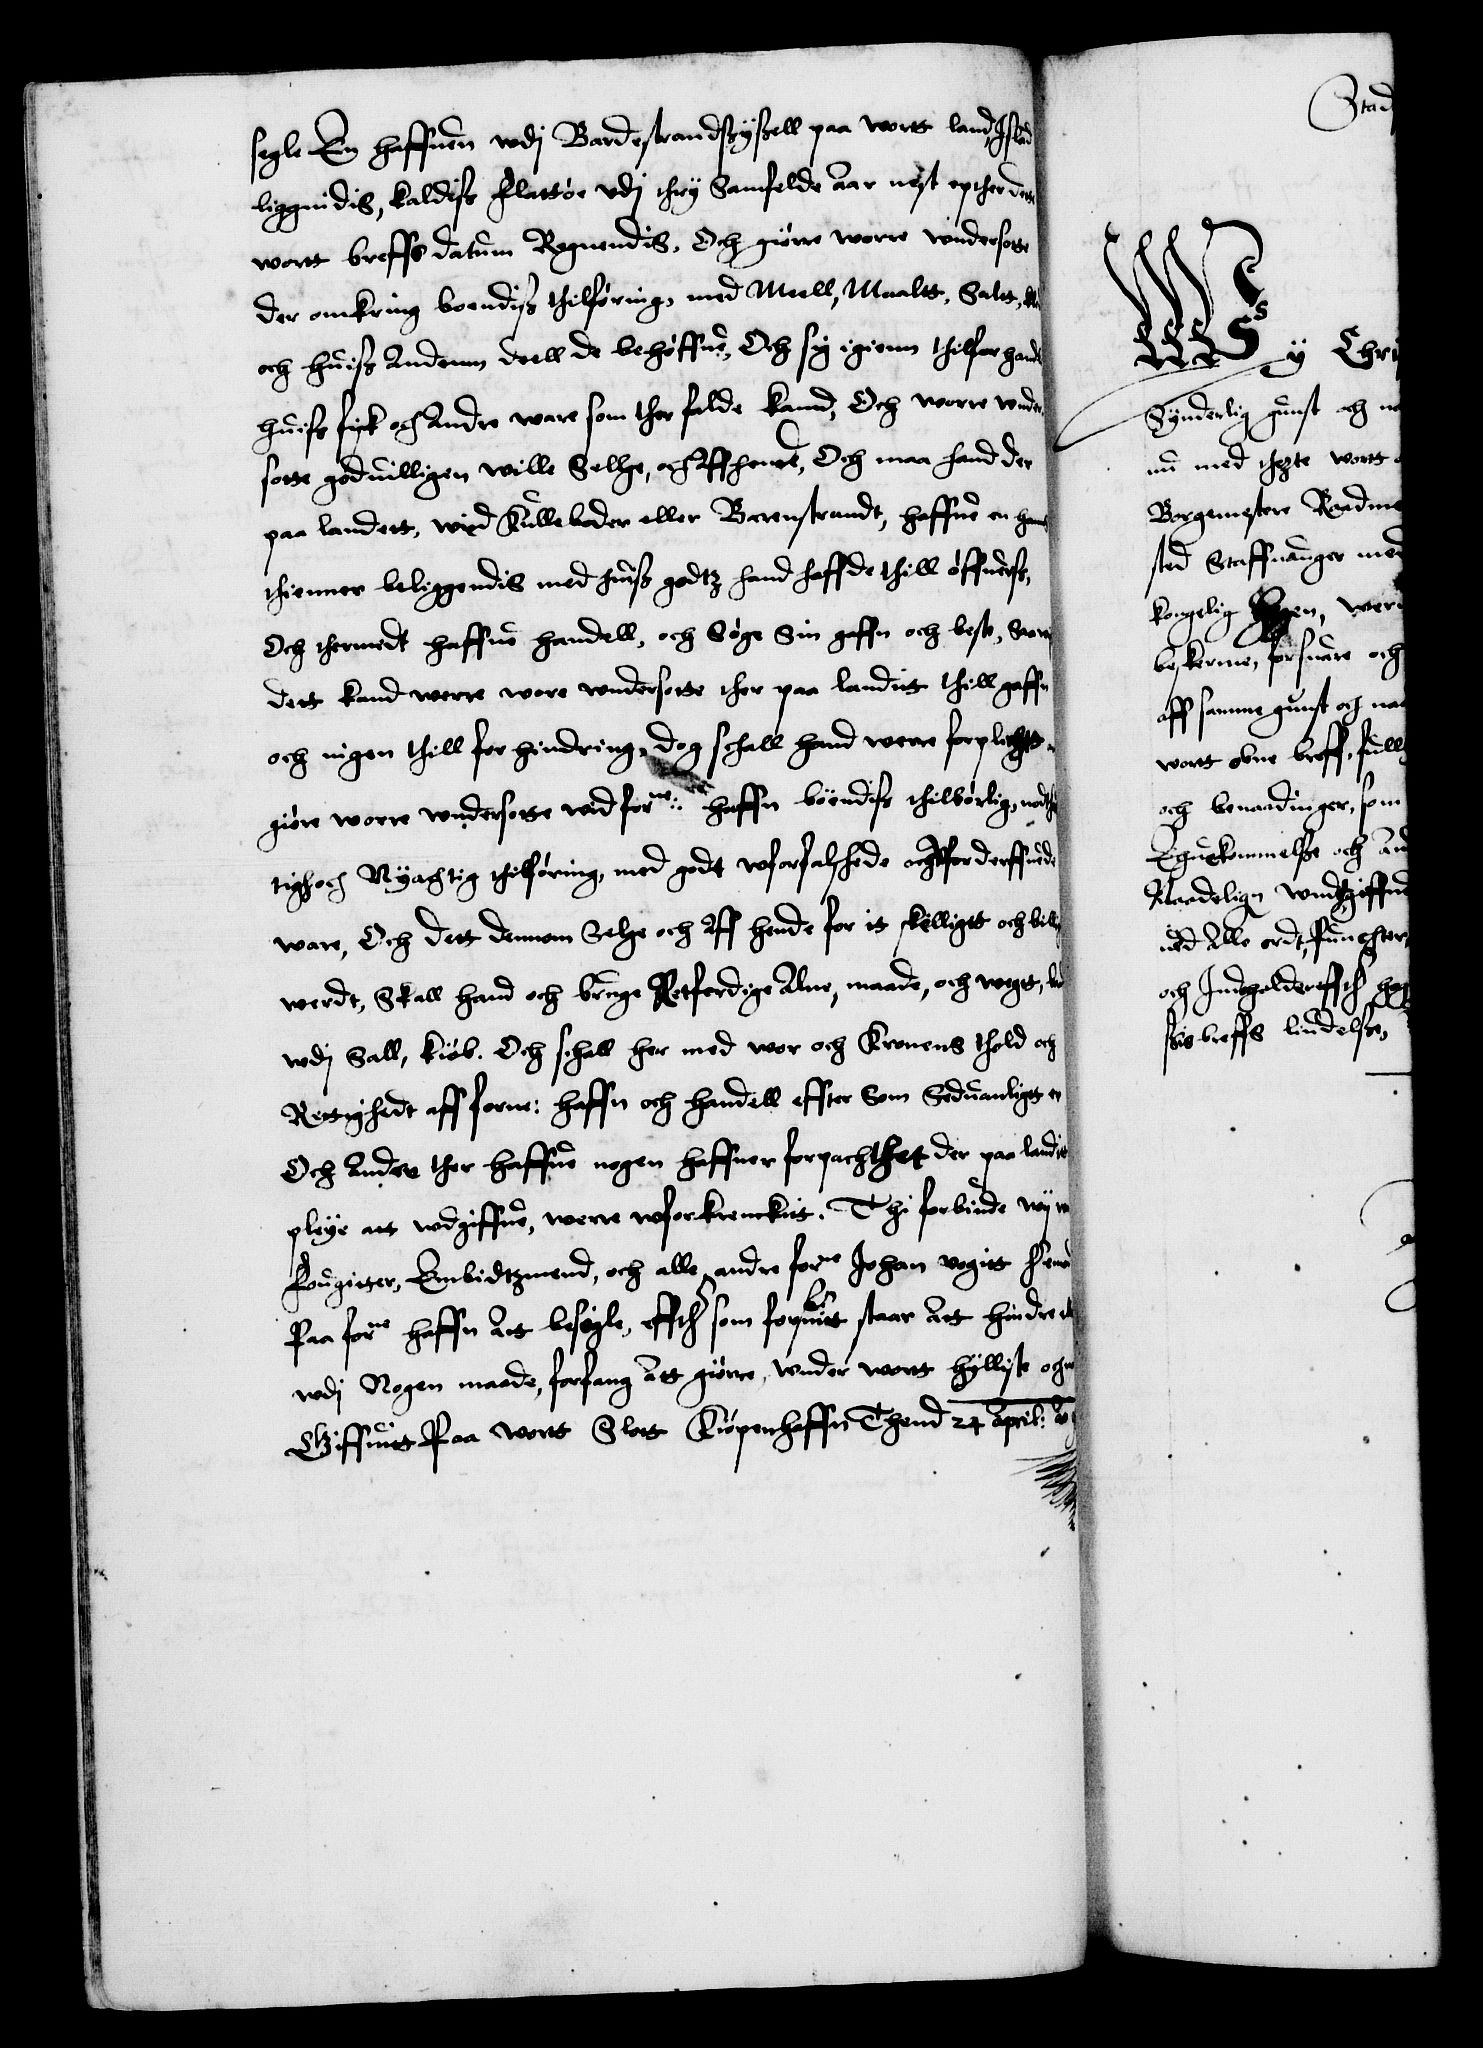 segle En haffuen wdj Bardestrandssyssell paa wortt land Jsland
liggendis, kaldiss Flattöe vdj thry Samfelde Aar nest epther dette
wortt breffs datum Regnendis, Och giörre worre wndersotte
der omkring boendiss thilföring, med Meell, Maaltt, Saltt,
och huiss Andenn deell de behöffue, Och sig igienn thilforhandle
huiss fisk och Andre ware som ther falde kand, Och worre wnder-
sotte goduilligen wille Selge, och Affhende, Och maa hand der
paa landett, wid Kulleboder eller Barenstrandt, haffue en hans
thienner beliggendis med huiss godtz hand haffde thill öffuerss,
Och thermedt haffue handell, och Söge Sin gaffn och beste, Saa
dett kand werre wore wndersotte ther paa landit thill gaffn
och ingen thill forhindring, Dog schall hand werre forplichtt
giöre worre wndersotte wid forne: haffn böendiss thilbörlig, nodt
tig och Nyachtig thilföring, med godt wforfalskede och wforderffuede
ware, Och dett dennom Selge och Aff hende for it skelligtt och billigt
werdt, Skall hand och bruge Retferdige Alne, maade, och wegtt,
wdj Sall, kiöb. Och schall her med wor och Kronens thold och
Rettighedt aff forne: haffn och handell effter Som Seduanligtt er
Och Andre ther haffue nogen haffner forpachthet der paa landit
pleye att wdgiffue, werre wforkrenckit. Thi forbinde wij
Fougitter, Embidtzmend, och alle andre forne Johan vogitt
Paa forne haffn Att besegle, effther som forskreffuit staar Att hindre
wdj Nogen maade, forfang Att giörre, wnder wortt hylliste och
Giffuitt Paa wortt Slott Kiöpenhaffn Thend 24 April:
Stad
Wy Chri
Synderlig gunst och
nu med thette wortt
Borgemestere Raadme
sted Staffuanger med
kongelig
beskerme, forsuare och
aff samme gunst och naa
wortt obne breff, full
och benaadinger, som
Ihukommelsse och And
Naadelign wndt giffuet
ued Alle ordt, Puncter,
och Indholder effther
thisbreffs liudelsse,